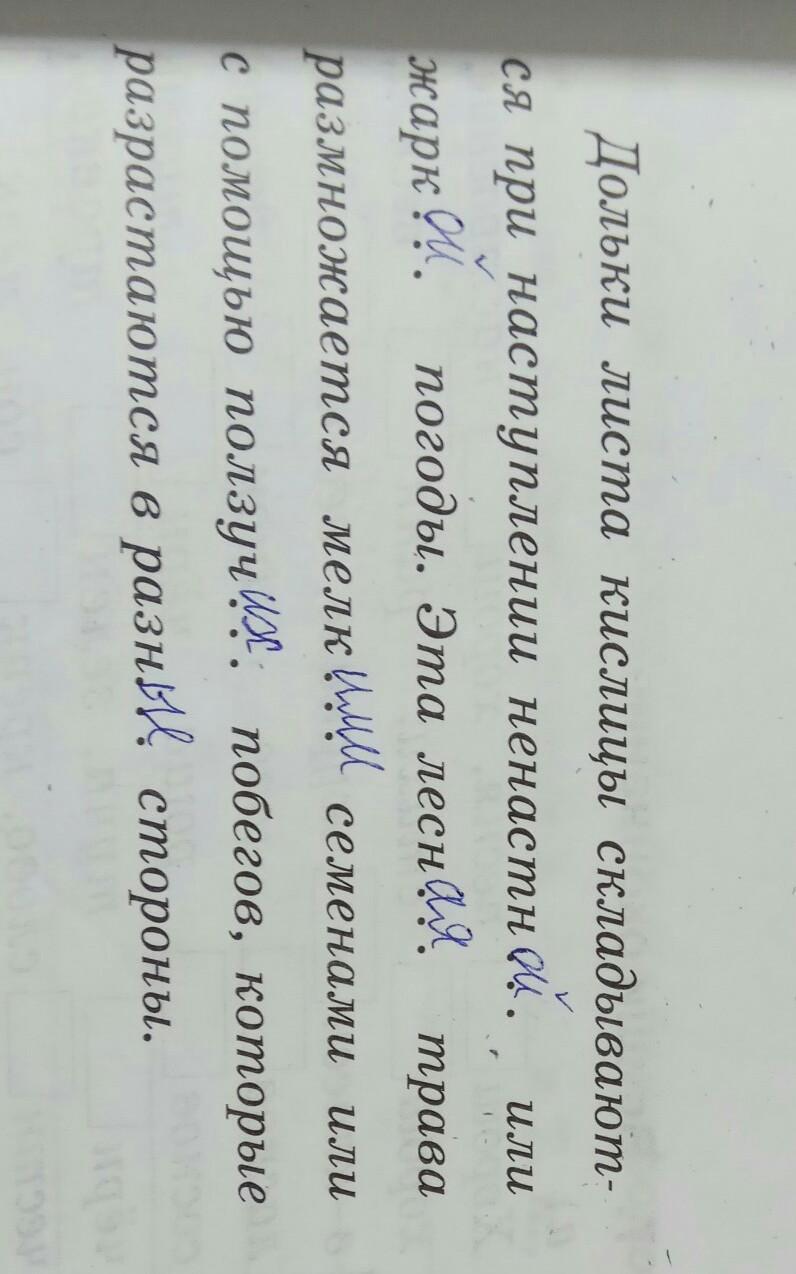 Дольки листа кислицы складывают-
ся при наступлении ненастной или
жаркой погоды. Эта лесная трава
размножается мелкими семенами или
с помощью ползучих побегов, которые
разрастаются в разны стороны.